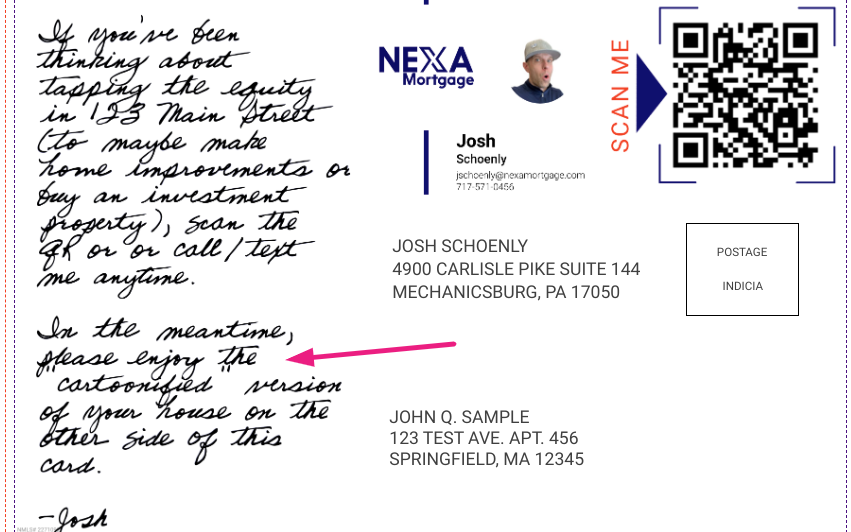 If you've been
thinking about
tapping the equity
in 123 Main Street
(to maybe make
home improvements or
buy an investment
property), scan the
QR or or call/text
me anytime.
In the meantime,
please enjoy the
"cartoonified" version
of your house on the
other side of this
card.
-Josh
NEXA
Mortgage
Josh
Schoenly
jschoenly@nexamortgage.com
717-571-0456
SCAN ME
JOSH SCHOENLY
4900 CARLISLE PIKE SUITE 144
MECHANICSBURG, PA 17050
POSTAGE
INDICIA
JOHN Q. SAMPLE
123 TEST AVE. APT. 456
SPRINGFIELD, MA 12345